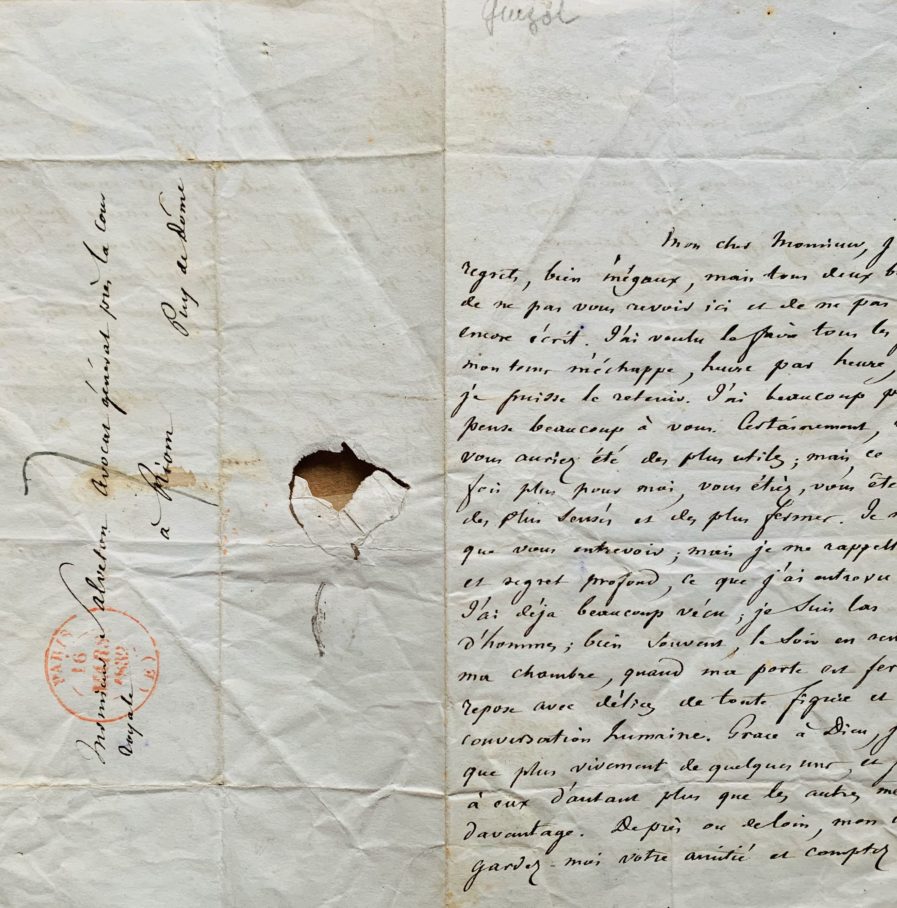 Guizot
Monsieur Salveton avocat général près la Cour
royale
à Riom
Puy de Dôme
PARIS
16
MARS
1839
(B)
Mon cher Monsieur, j
regrets, bien inégaux, mais tous deux b
de ne pas vous revoir ici et de ne pas
encore écrit. J'ai voulu le faire tous les j
mon tems m'échappe, heure par heure,
je puisse le retenir. J'ai beaucoup p
pense beaucoup à vous. Certainement,
vous auriez été des plus utiles; mais ce
fois plus pour moi, vous étiez, vous ête
des plus sensés et des plus fermes. Je n
que vous entrevoir; mais je me rappell
et regret profond, ce que j'ai entrevu
J'ai déja beaucoup vécu; je suis las
d'hommes; bien souvent, le soir en ren
ma chambre, quand ma porte est fer
repose avec délices de toute figure et
conversation humaine. Grace à Dieu, j
que plus vivement de quelques uns, et j
à eux d'autant plus que les autres me
davantage. De près ou de loin, mon c
gardez-moi votre amitié et comptez